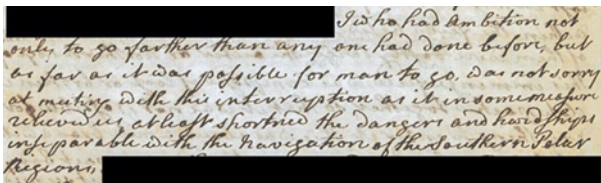 I who had Ambition not
only to go farther than any one had done before, but
as far as it was possible for man to go, was not sorry
at meeting with this interruption as it in some measure
relieved us, at least shortned the dangers and hardships
inseparable with the Navigation of the Southern Polar
Regions,